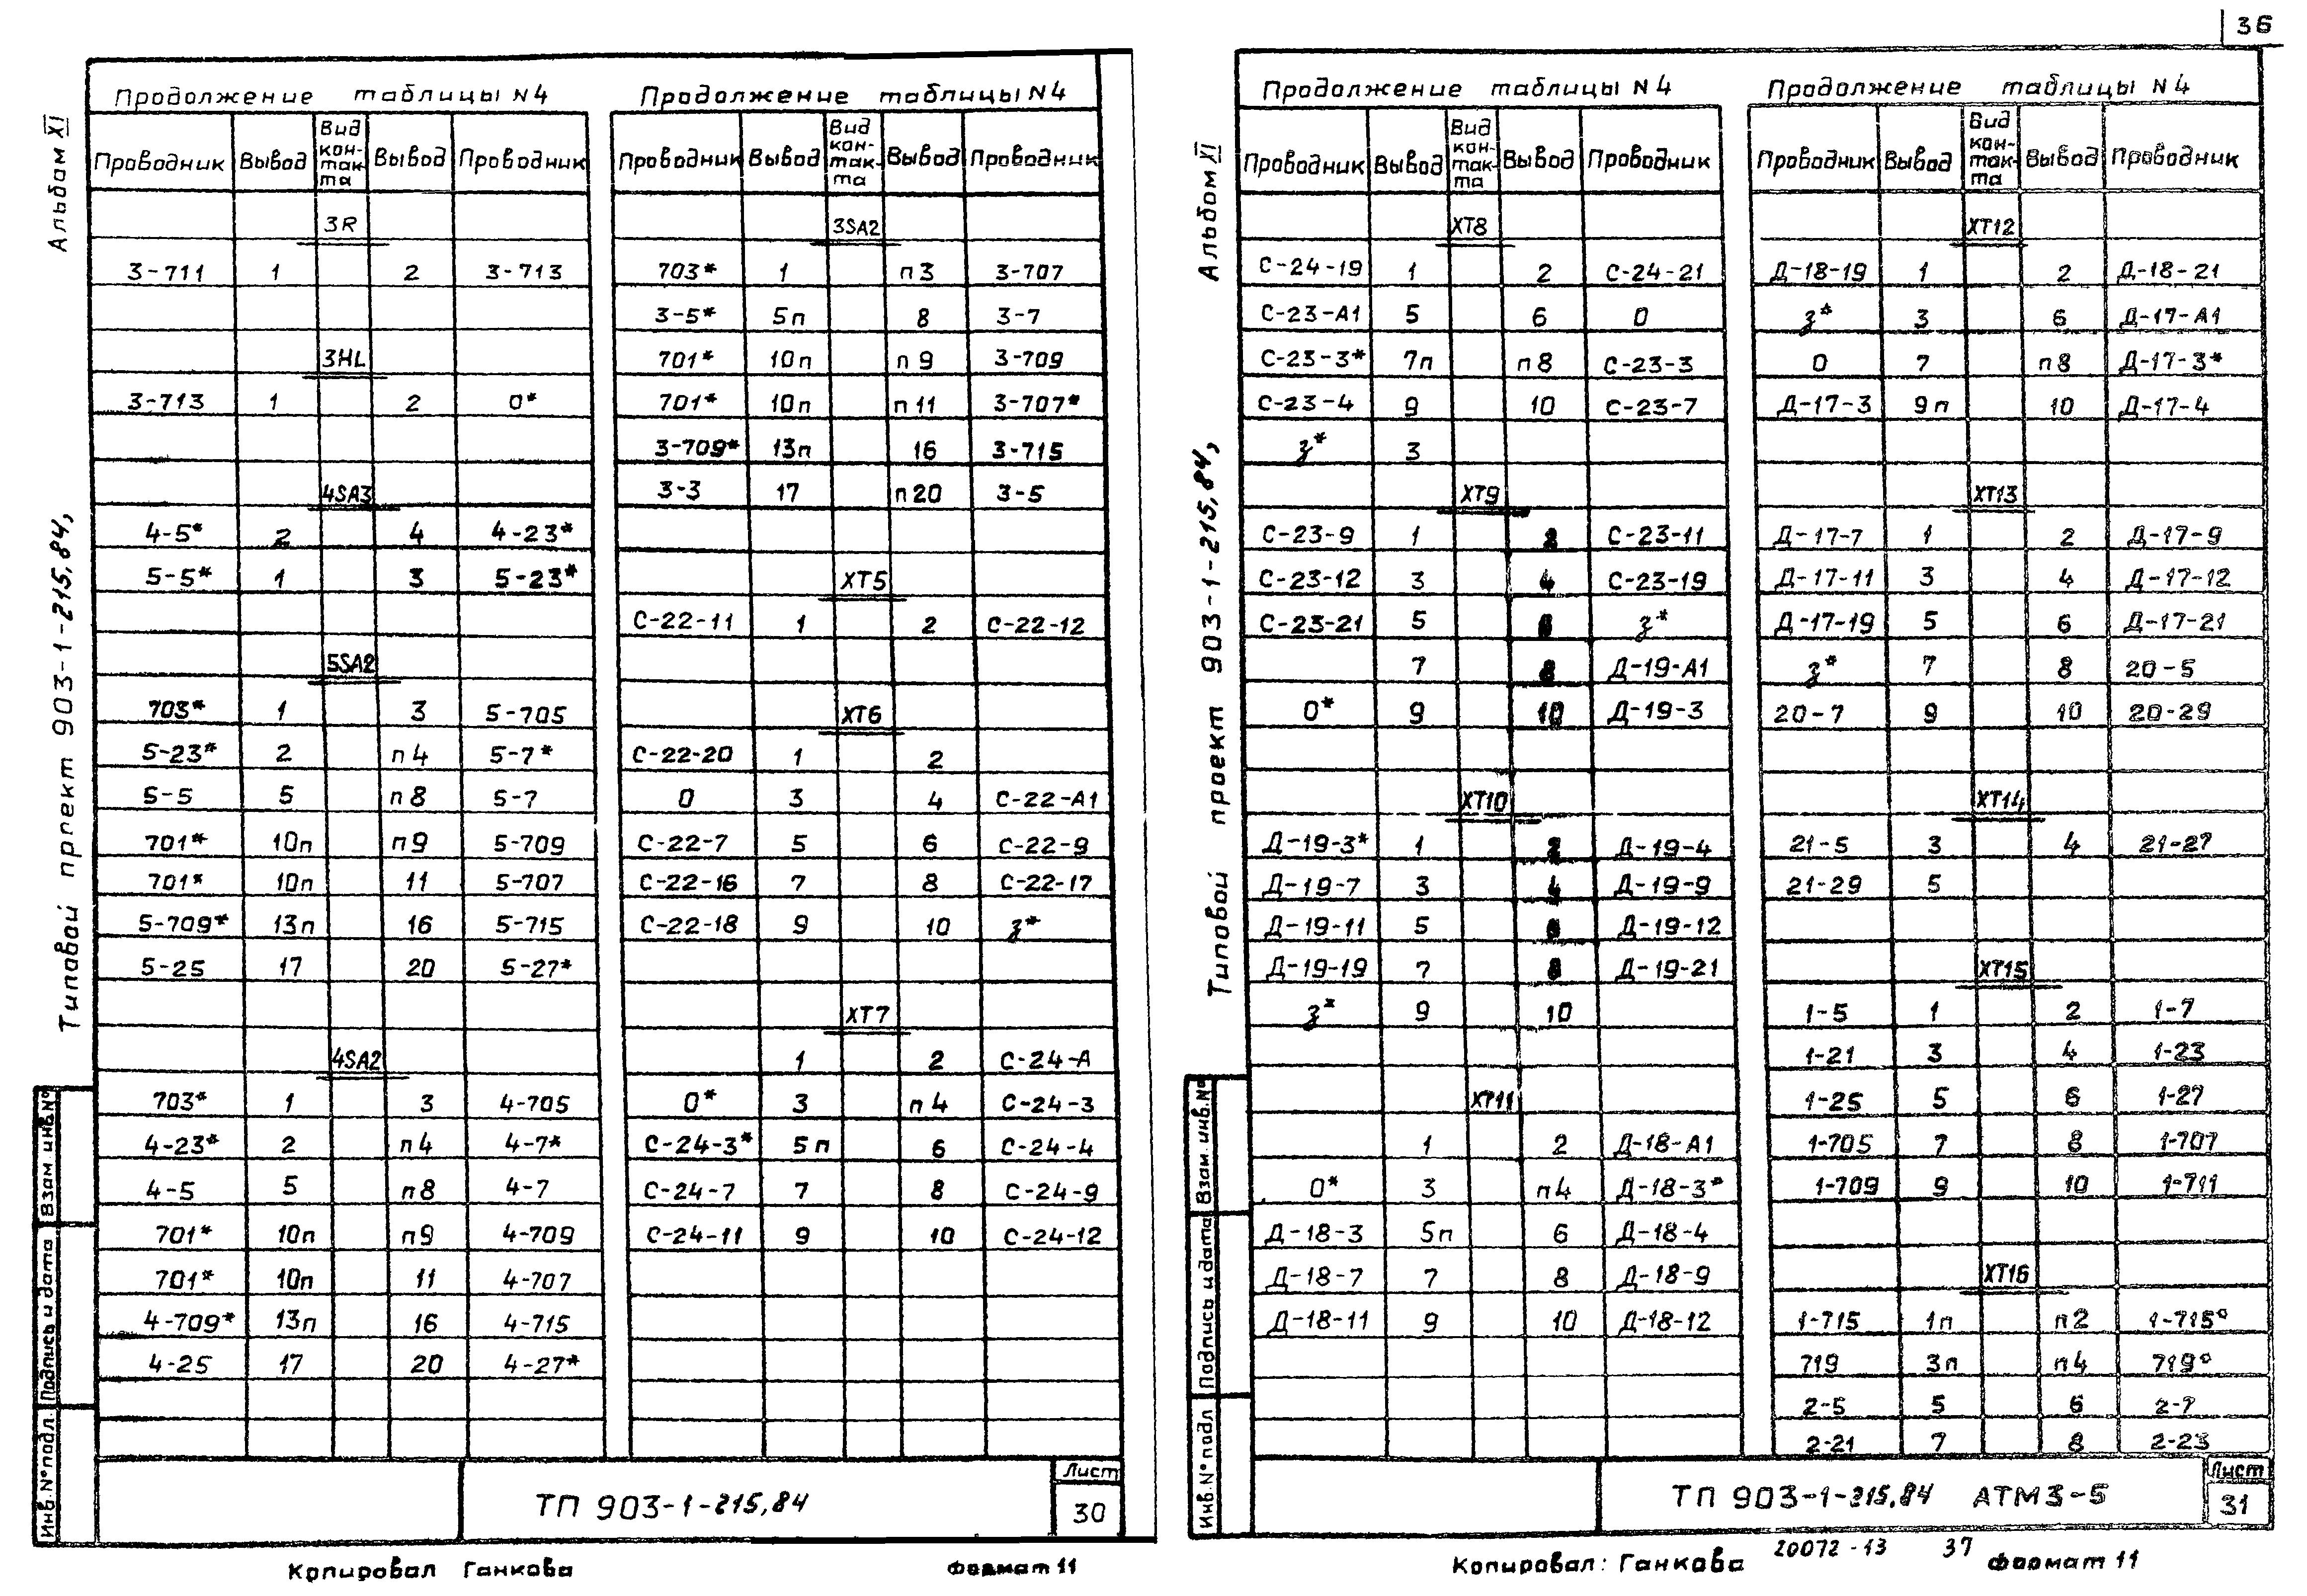 36
Альбом XI
Типовой прпект 903-1-215,84,
Продолжение таблицы N4
Проводник Вывод Вид кон-так-та Вывод Проводник
3R
3-711 1 2 3-713
3HL
3-713 1 2 0*
4SA3
4-5* 2 4 4-23*
5-5* 1 3 5-23*
5SA2
703* 1 3 5-705
5-23* 2 п4 5-7*
5-5 5 п8 5-7
701* 10п п9 5-709
701* 10п 11 5-707
5-709* 13п 16 5-715
5-25 17 20 5-27*
4SA2
703* 1 3 4-705
4-23* 2 п4 4-7*
4-5 5 п8 4-7
701* 10п п9 4-709
701* 10п 11 4-707
4-709* 13п 16 4-715
4-25 17 20 4-27*
Продолжение таблицы N4
Проводник Вывод Вид кон-так-та Вывод Проводник
3SA2
703* 1 п3 3-707
3-5* 5п 8 3-7
701* 10п п9 3-709
701* 10п п11 3-707*
3-709* 13п 16 3-715
3-3 17 п20 3-5
XT5
С-22-11 1 2 С-22-12
XT6
С-22-20 1 2
0 3 4 С-22-А1
С-22-7 5 6 С-22-9
С-22-16 7 8 С-22-17
С-22-18 9 10 з*
XT7
1 2 С-24-А
0* 3 п4 С-24-3
С-24-3* 5п 6 С-24-4
С-24-7 7 8 С-24-9
С-24-11 9 10 С-24-12
Взам инв.N°
Подпись и дата
Инв.N°подл.
ТП 903-1-215,84
Лист
30
Копировал Ганкова
Формат 11
Альбом XI
Типовой проект 903-1-215,84,
Продолжение таблицы N4
Проводник Вывод Вид кон-так-та Вывод Проводник
XT8
С-24-19 1 2 С-24-21
С-23-А1 5 6 0
С-23-3* 7п п8 С-23-3
С-23-4 9 10 С-23-7
з* 3
XT9
С-23-9 1 2 С-23-11
С-23-12 3 4 С-23-19
С-23-21 5 6 з*
7 8 Д-19-А1
0* 9 10 Д-19-3
XT10
Д-19-3* 1 2 Д-19-4
Д-19-7 3 4 Д-19-9
Д-19-11 5 6 Д-19-12
Д-19-19 7 8 Д-19-21
з* 9 10
XT11
1 2 Д-18-А1
0* 3 п4 Д-18-3*
Д-18-3 5п 6 Д-18-4
Д-18-7 7 8 Д-18-9
Д-18-11 9 10 Д-18-12
Продолжение таблицы N4
Проводник Вывод Вид кон-так-та Вывод Проводник
XT12
Д-18-19 1 2 Д-18-21
з* 3 6 Д-17-А1
0 7 п8 Д-17-3*
Д-17-3 9п 10 Д-17-4
XT13
Д-17-7 1 2 Д-17-9
Д-17-11 3 4 Д-17-12
Д-17-19 5 6 Д-17-21
з* 7 8 20-5
20-7 9 10 20-29
XT14
21-5 3 4 21-27
21-29 5
XT15
1-5 1 2 1-7
1-21 3 4 1-23
1-25 5 6 1-27
1-705 7 8 1-707
1-709 9 10 1-711
XT16
1-715 1п п2 1-715°
719 3п п4 719°
2-5 5 6 2-7
2-21 7 8 2-23
Взам. инв.N°
Подпись и дата
Инв.N°подл
ТП 903-1-215,84 АТМ3-5
Лист
31
Копировал: Ганкова
20072-13 37
Формат 11